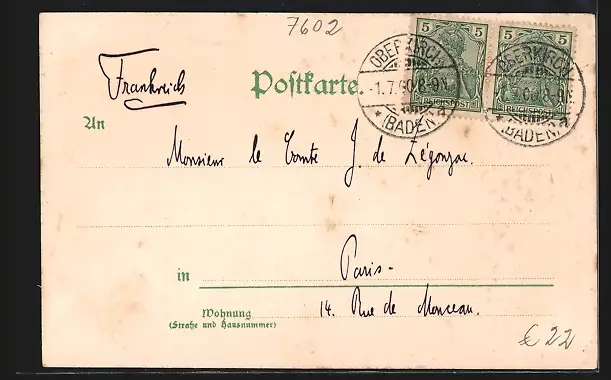 7602
Frankreich
Postkarte.
5 5 5 5
REICHSPOST REICHSPOST
OBERKIRCH
-1.7.00.8-9N.
* (BADEN) a
OBERKIRCH
* (BADEN) a
An
Monsieur le Comte J. de Légonzac.
in Paris-
Wohnung
(Straße und Hausnummer)
14. Rue de Monceau.
€ 22